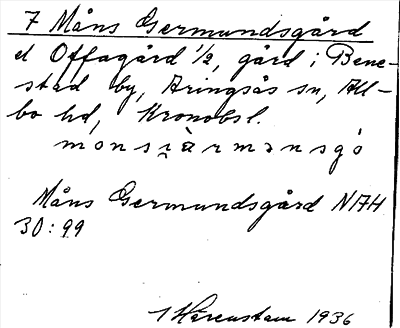 7 Måns Germundsgård
el Offagård 1/2, gård i Bene-
stad by, Aringsås sn, All-
bo hd, Kronobsl.
månsjärmansgå
Måns Germundsgård NAH
30:99
Härenstam 1936